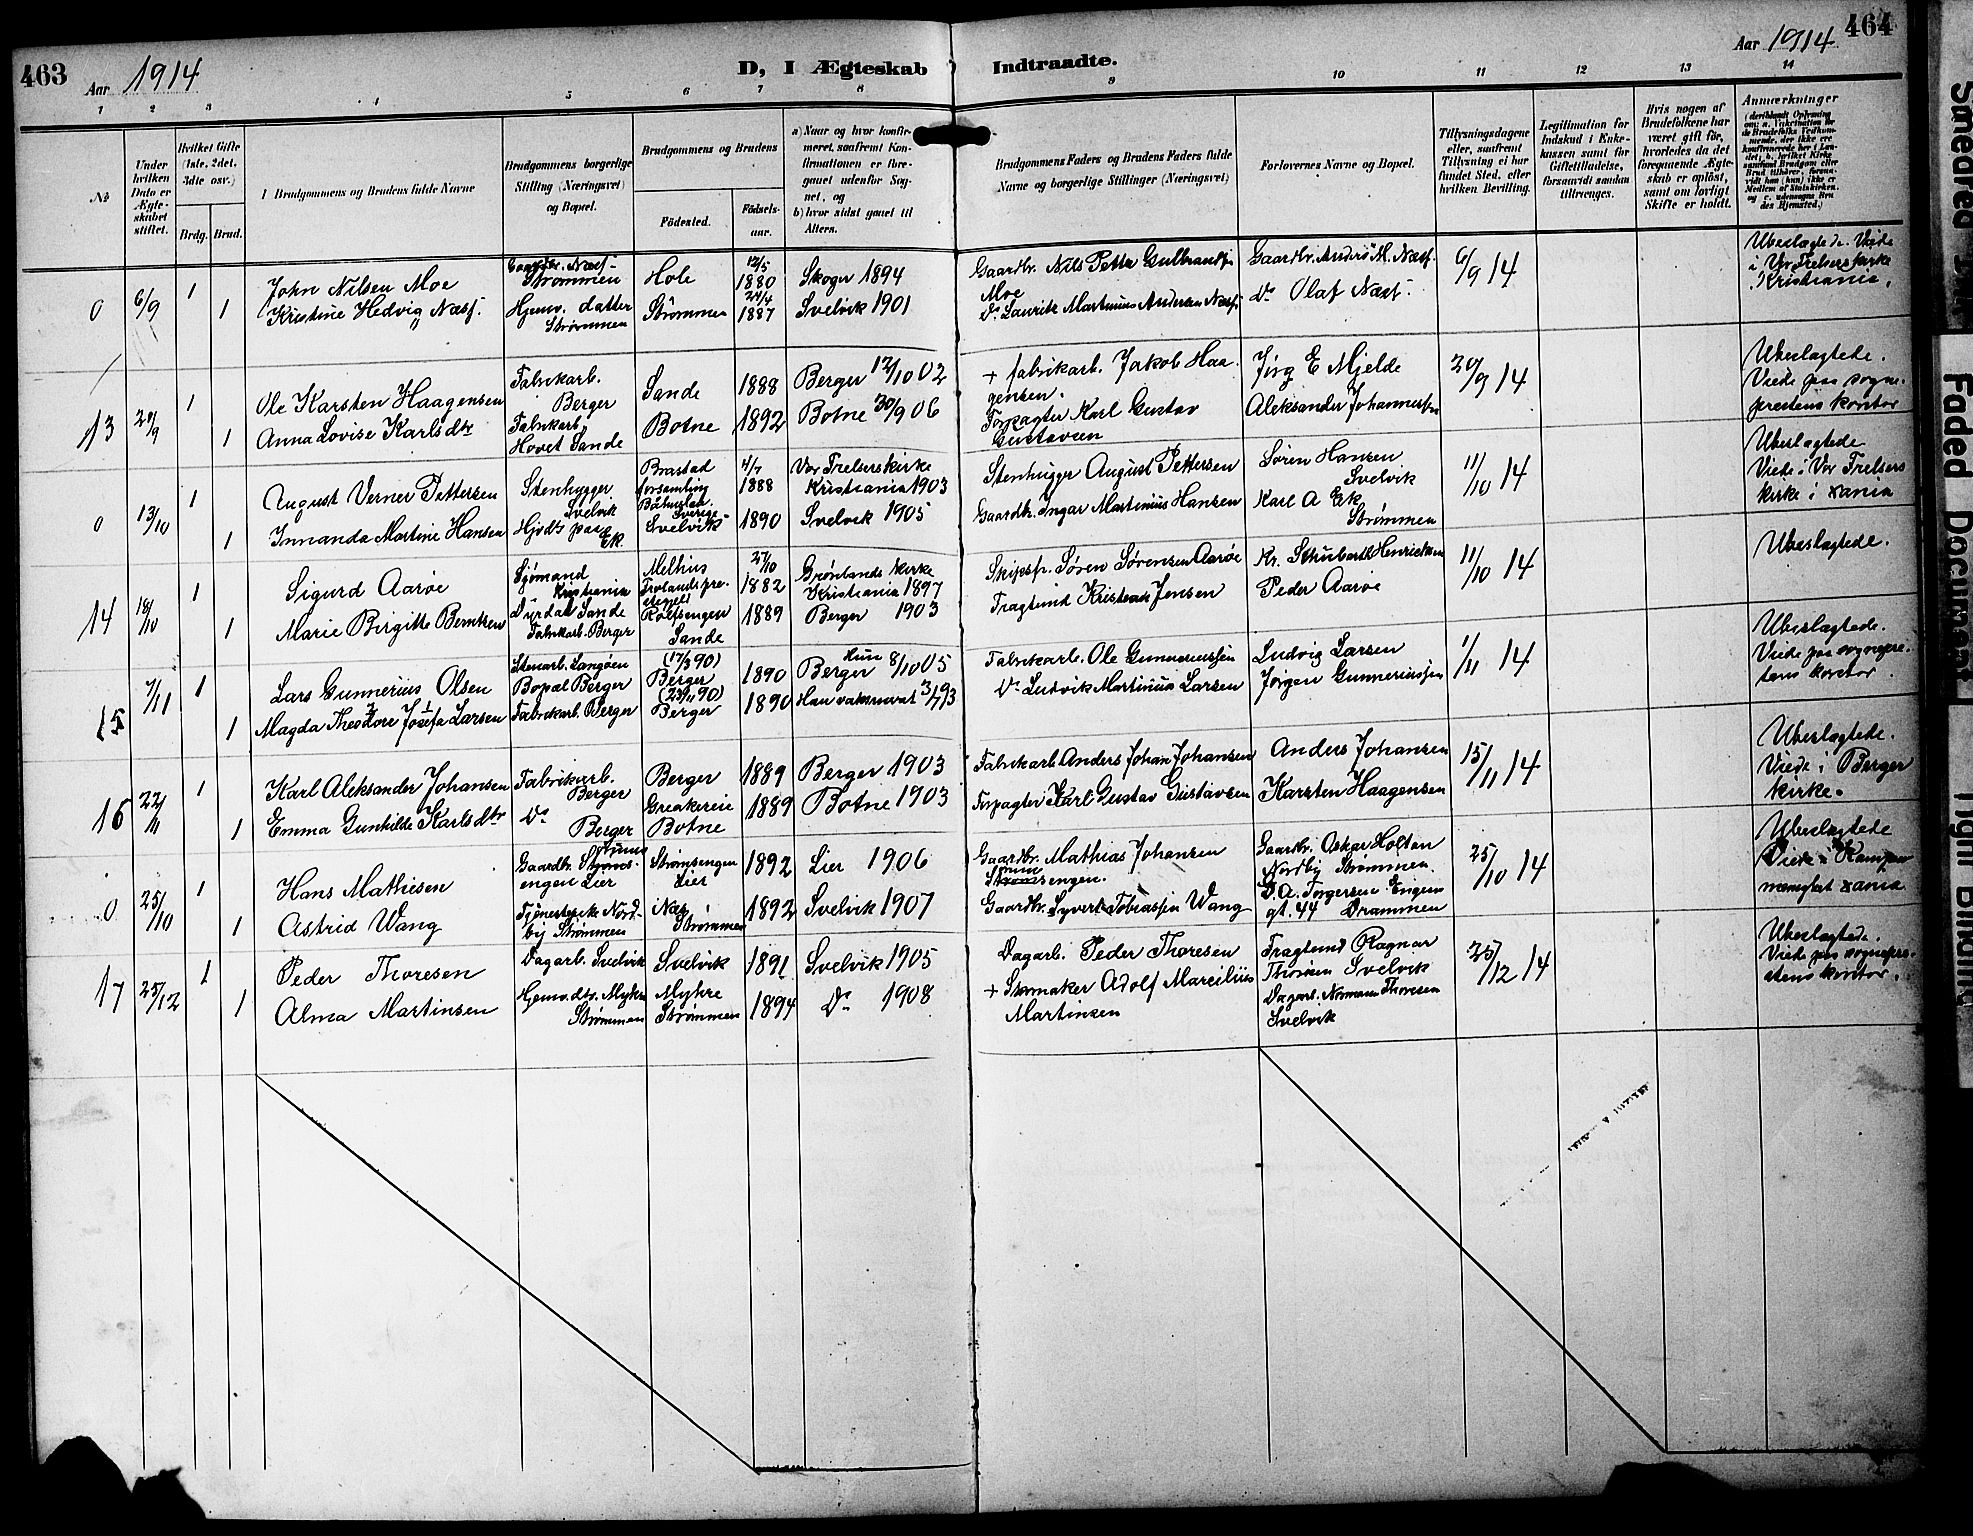 463
Aar 1914
D, I Ægteskab Indtraadte.
Aar 1914
464
1 2 3 4 5 6 7 8 9 10 11 12 13 14
No
Under hvilken Dato er Ægteskabet stiftet.
Hvilket Gifte (1ste, 2det, 3die osv.)
Brdg. Brud.
Brudgommens og Brudens fulde Navne
Brudgommens borgerlige Stilling (Næringsvei) og Bopæl.
Brudgommens og Brudens
Födested.
Födselsaar.
a) Naar og hvor konfirmeret, saafremt Konfirmationen er foregaaet udenfor Sognet, og
b) hvor sidst gaaet til Alters.
Brudgommens Faders og Brudens Faders fulde Navne og borgerlige Stillinger (Næringsvei)
Forlovernes Navne og Bopæl.
Tillysningsdagene eller, saafremt Tillysning ei har fundet Sted, efter hvilken Bevilling.
Legitimation for Indskud i Enkekassen samt for Giftetilladelse, forsaavidt saadan tiltrenges.
Hvis nogen af Brudefolkene har været gift för, hvorledes da det foregaaende Ægteskab er oplöst, samt om lovligt Skifte er holdt.
Anmærkninger
0 6/9 1 John Nilsen Moe Gaardbr. Næss Strømmen Hole 12/5 1880 Skoger 1894
1 Kristine Hedvig Næss. Hjemv. datter Strømmen Strømmen 24/4 1887 Svelvik 1901
Gaardbr. Nils Petter Gulbrandsen Moe
Do Laurits Martinius Andersen Næss
Gaardbr. Anders M. Næss.
Do Olaf Næss.
6/9 14
Ubeslægtede. Viede i Vor Frelsers kirke Kristiania.
13 20/9 1 Ole Karsten Haagensen Fabrikarb. Berger Sande 1888 Berger 12/10 02
1 Anna Lovise Karlsdtr Fabrikarb. Hovet Sande Botne 1892 Botne 30/9 06
+ fabrikarb. Jakob Haagensen.
Forpagter Karl Gustav Gustavsen
Jörg E Mjelde
Aleksander Johannessen
20/9 14
Ubeslægtede. Viede paa sogneprestens kontor
0 13/10 1 August Verner Pettersen Stenhugger Svelvik Brastad forsamling Båhuslæn Sverige 4/7 1888 Vor Frelsers kirke Kristiania 1903
1 Innanda Martine Hansen Hjvdtr paa Ek. Svelvik 1890 Svelvik 1905
Stenhugger August Pettersen
Gaardbr. Ingar Martinius Hansen
Søren Hansen Svelvik
Karl A Ek Strømmen
11/10 14
Ubeslægtede Viede i Vor Frelsers kirke i Xania
14 18/10 1 Sigurd Aarøe Sjømand Kristiania Melhus 27/10 1882 Grønlands kirke Kristiania 1897
1 Marie Birgitte Berntsen Dyrdal Sande Fabrikarb. Berger Rolfsengen Sande 1889 Berger 1903
Skipsf. Søren Sørensen Aarøe
Fragtmd Kristian Jensen
Kr. Schubert Henriksen
Peder Aarøe
11/10 14
Ubeslægtede.
15 7/11 1 Lars Gunnerius Olsen Stenarb. Langøen Bopæl Berger (17/3 90) Berger 1890 Berger Hun 8/10 05
1 Magda Theodore Josefa Larsen Fabrikarb. Berger (23/11 90) Berger 1890
Fabrikarb. Ole Gunneriussen
Do Ludvik Martinius Larsen
Ludvig Larsen
Jørgen Gunneriussen
1/11 14
Ubeslægtede. Viede paa sogneprestens kontor
16 22/11 1 Karl Aleksander Johansen Fabrikarb. Berger Berger 1889 Berger 1903
1 Emma Gunhilde Karlsdtr Do Berger Greakereie Botne 1889 Botne 1903
Fabrikarb. Anders Johan Johansen
Forpagter Karl Gustav Gustavsen
Anders Johansen
Karsten Haagensen
15/11 14
Ubeslægtede. Viede i Berger kirke.
0 25/10 1 Hans Mathiesen Gaardbr. Lier Strømsengen Lier 1892 Lier 1906
1 Astrid Wang Tjenestepike Nordby Strømmen Næs Strømmen 1892 Svelvik 1907
Gaardbr. Mathias Johansen
Gaardbr. Syvert Tobiassen Wang
Gaardbr. Oskar Holtan Nordby Strømmen
D. A. Torgersen Engene gt. 44 Drammen
25/10 14
Ubeslægtede Viede i Kampen menighet Xania
17 25/12 1 Peder Thoresen Dagarb. Svelvik Svelvik 1891 Svelvik 1905
1 Alma Martinsen Hjemv. dtr. Mykre Strømmen Mykre Strømmen 1894 Do 1908
Dagarb. Peder Thoresen
+ Skomaker Adolf Marcilius Martinsen
Fragtmd Ragnar Thoresen Svelvik
Dagarb. Norman Thoresen Svelvik
25/12 14
Ubeslægtede. Viede paa sogneprestens kontor.
Faded Document
Tight Binding